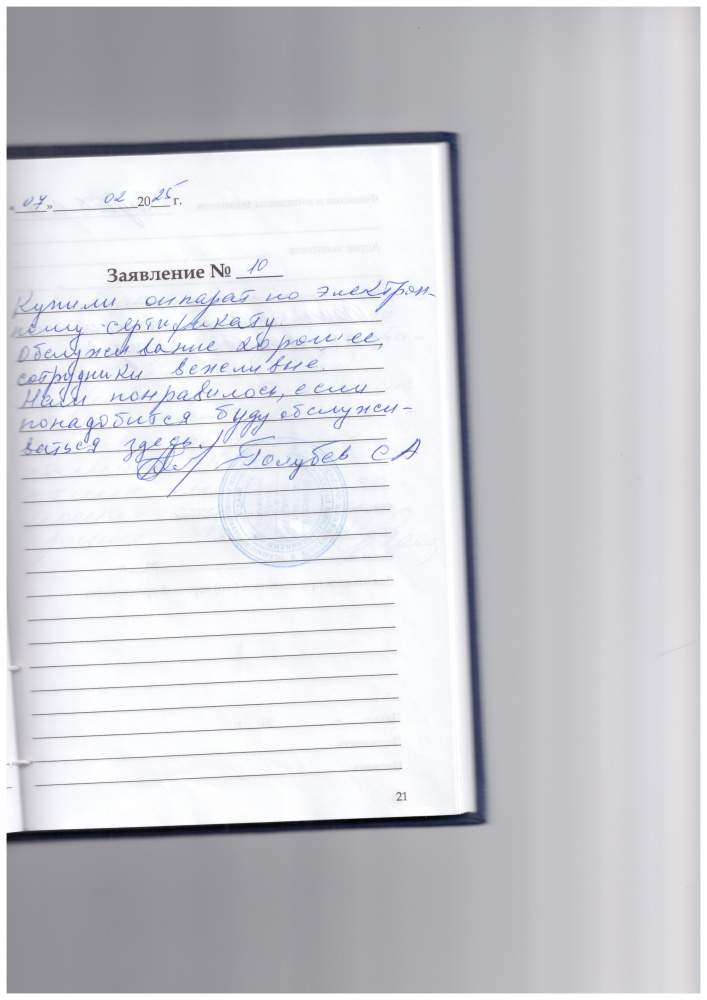 «07» 02 2025 г.
Заявление № 10
Купили аппарат по электрон-
ному сертификату.
Обслуживание хорошее,
сотрудники вежливые.
Нам понравилось, если
понадобится буду обслужи-
ваться здесь.
Голубев С А
21